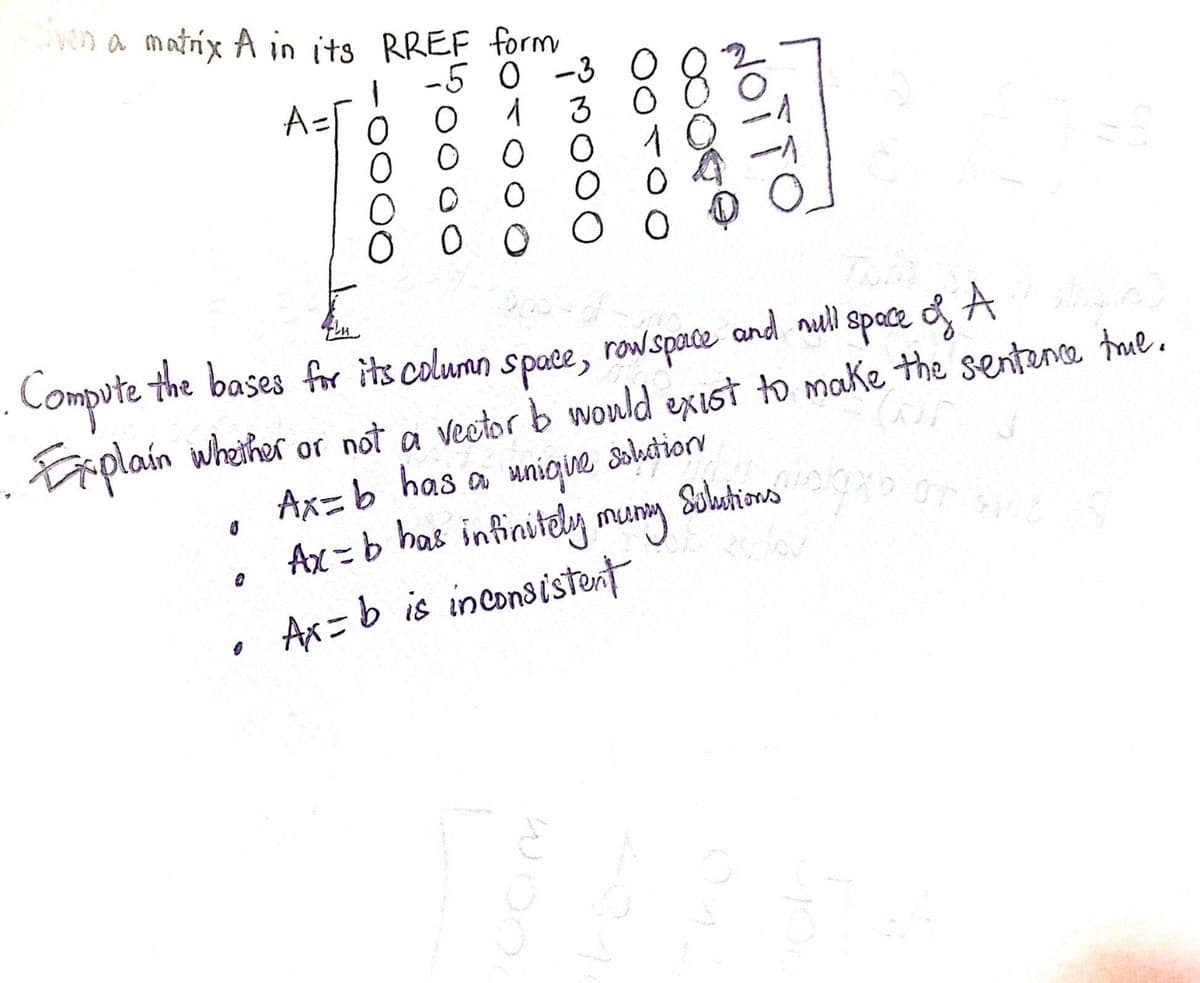 Given a matrix A in its RREF form
A=[ 1 -5 0 -3 0 0 2
0 0 1 3 0 0 0
0 0 0 0 1 0 -1
0 0 0 0 0 1 -1
0 0 0 0 0 0 0 ]
. Compute the bases for its column space, rowspace and null space of A
. Explain whether or not a vector b would exist to make the sentence true.
• Ax=b has a unique solution
• Ax=b has infinitely many Solutions
• Ax=b is inconsistent